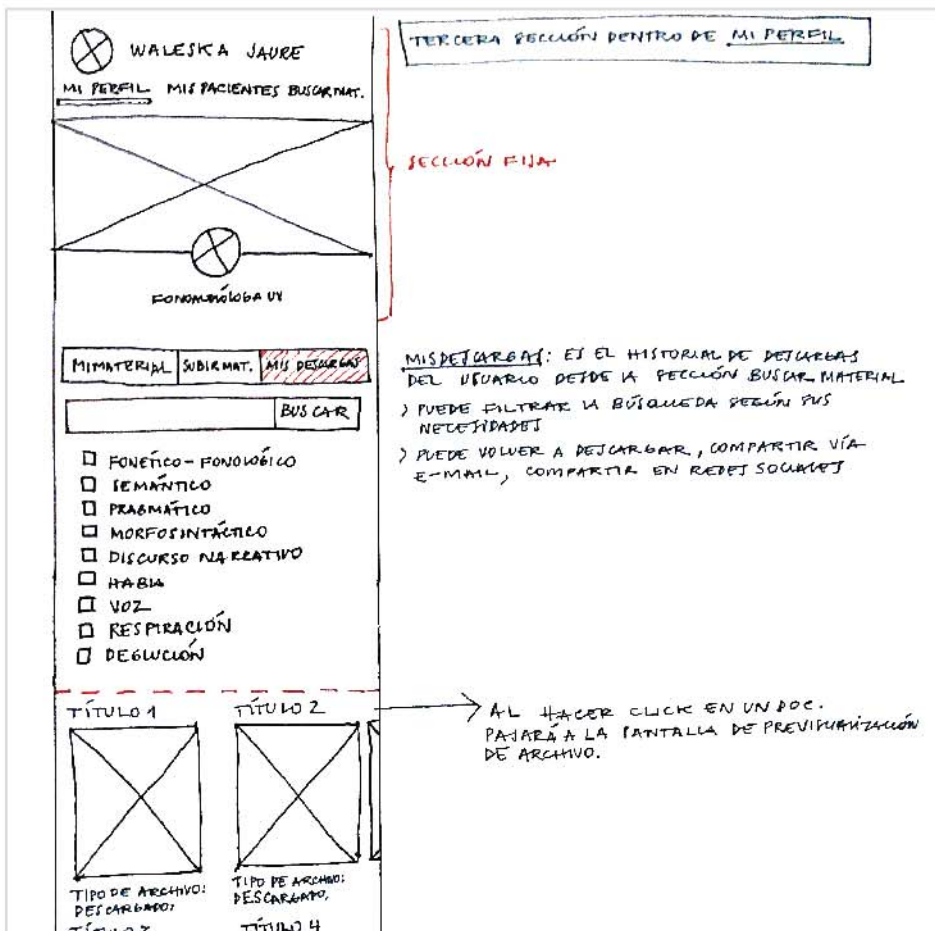 WALESKA JAURE
MI PERFIL MIS PACIENTES BUSCAR MAT.
FONOAUDIÓLOGA UV
MI MATERIAL SUBIR MAT. MIS DESCARGAS
BUSCAR
FONÉTICO-FONOLÓGICO
SEMÁNTICO
PRAGMÁTICO
MORFOSINTÁCTICO
DISCURSO NARRATIVO
HABLA
VOZ
RESPIRACIÓN
DEGLUCIÓN
TÍTULO 1 TÍTULO 2
TIPO DE ARCHIVO: TIPO DE ARCHIVO:
DESCARGADO: DESCARGADO:
TÍTULO 3 TÍTULO 4
TERCERA SECCIÓN DENTRO DE MI PERFIL
SECCIÓN FIJA
MIS DESCARGAS: ES EL HISTORIAL DE DESCARGAS
DEL USUARIO DESDE LA SECCIÓN BUSCAR MATERIAL
> PUEDE FILTRAR LA BÚSQUEDA SEGÚN SUS
NECESIDADES
> PUEDE VOLVER A DESCARGAR, COMPARTIR VÍA
E-MAIL, COMPARTIR EN REDES SOCIALES
AL HACER CLICK EN UN DOC.
PASARÁ A LA PANTALLA DE PREVISUALIZACIÓN
DE ARCHIVO.